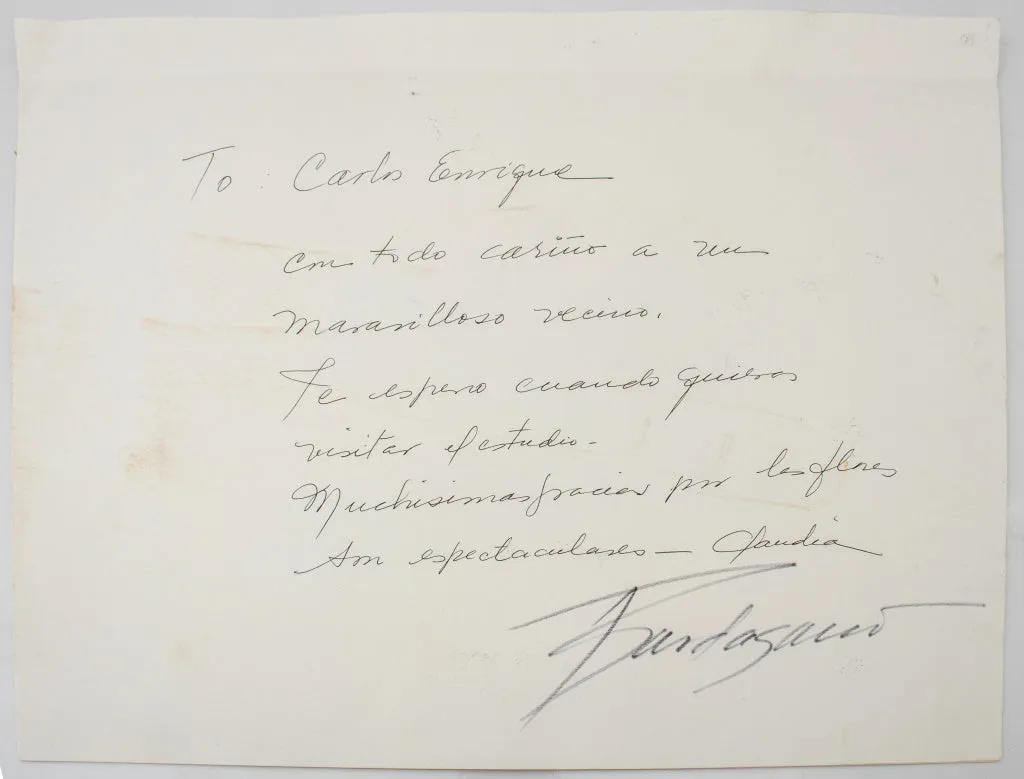 To: Carlos Enrique
con todo cariño a un
maravilloso vecino.
Te espero cuando quieras
visitar el estudio-
Muchisimas gracias por las flores
son espectaculares — Claudia